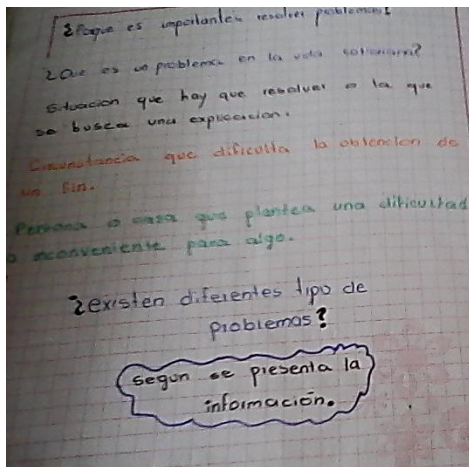 ¿Porque es importantes resolver problemas?
¿Que es un problema en la vida cotidiana?
Situacion que hay que resolver o la que
se busca una explicacion.
Circunstancia que dificulta la obtencion de
un fin.
Persona o cosa que plantea una dificultad
o inconveniente para algo.
¿existen diferentes tipo de
problemas?
segun se presenta la
información.